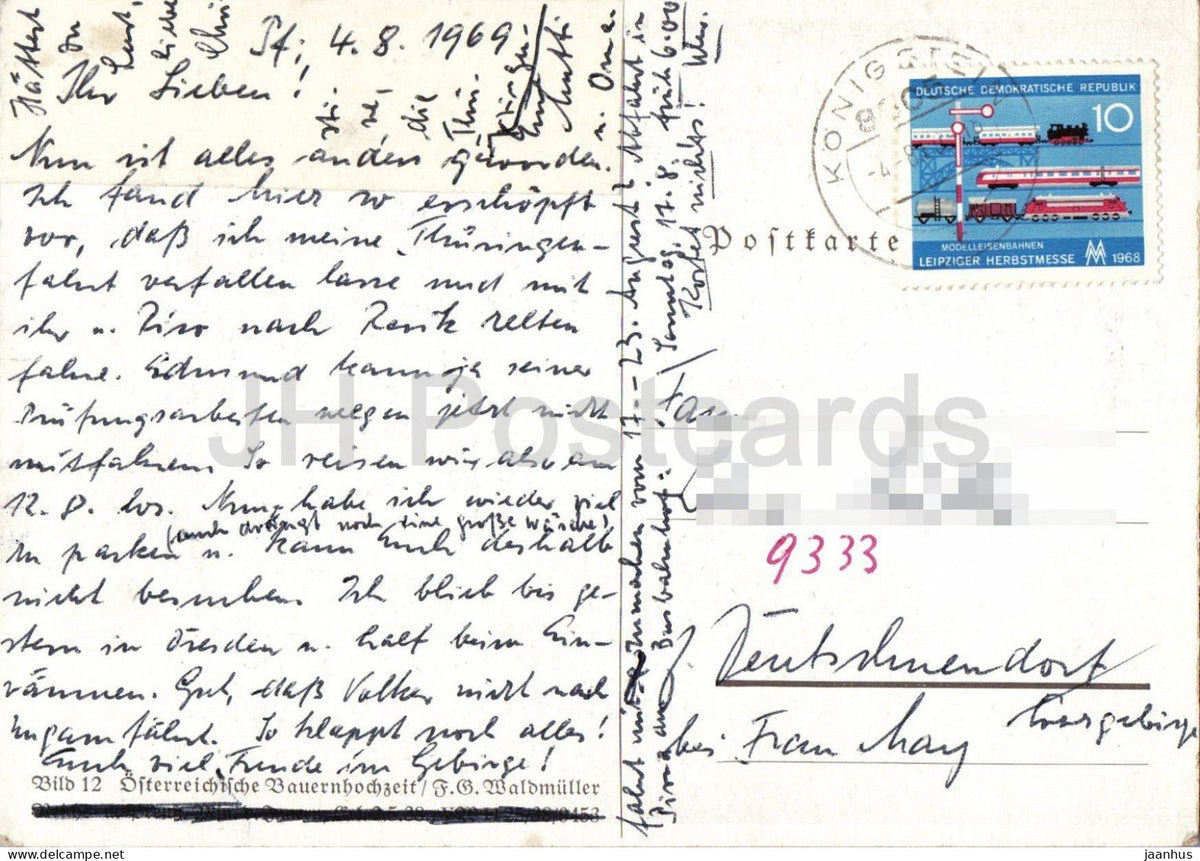 Pf, 4. 8. 1969
Ihr Lieben!
Nun ist alles anders geworden.
Ich fand hier so erschöpft
vor, daß ich meine Thüringen-
fahrt verfallen lasse und mit
ihr u. nach zelten
fahre. Edmund kann ja seiner
Prüfungsarbeiten wegen jetzt nicht
mitfahren. So reisen wir also am
12. 8. los. Nun habe ich wieder viel
(auch drängt noch eine große Wäsche)
zu packen u. kann Euch deshalb
nicht besuchen. Ich blieb bis ge-
stern in Dresden u. half beim Ein-
räumen. Gut, daß Volker nicht nach
Ungarn fährt. So klappt noch alles!
Euch viel Freude im Gebirge!
Bild 12 Österreichische Bauernhochzeit / F. G. Waldmüller
Hättest Du Lust,
liebe
die Thü-
Mutti
u. Oma
fahrt mitzumachen vom 17.-23. August? Abfahrt in
Pirna am Busbahnhof: Sonntag, 17. 8. früh 6.00
Kostet nichts!
Postkarte
KÖNIGSTEIN
DEUTSCHE DEMOKRATISCHE REPUBLIK
10
MODELLEISENBAHNEN
LEIPZIGER HERBSTMESSE MM 1968
Fam.
9333
Deutschneudorf
Erzgebirge
bei Frau May
JH Postcards
jaanhus